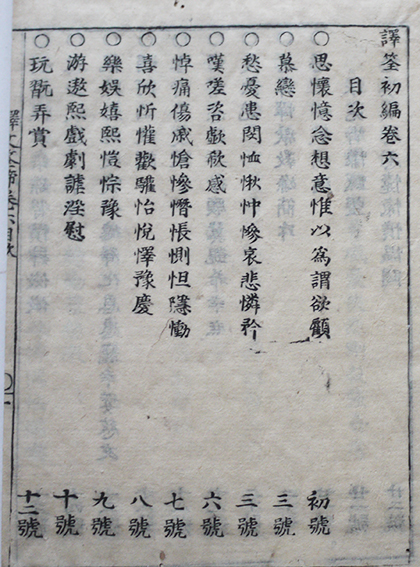 譯筌初編卷六
目次
○思懷憶念想意惟以為謂欲願 初號
○慕戀 三號
○愁憂患悶恤愀忡慘哀悲憐矜 三號
○嘆嗟咨歔欷感 六號
○悼痛傷戚愴慘憯悵惻怛隱慟 七號
○喜欣忻懽歡驩怡悅懌豫慶 八號
○樂娛嬉熙愷悰豫 九號
○游遨熙戲劇謔淫慰 十號
○玩翫弄賞 十二號